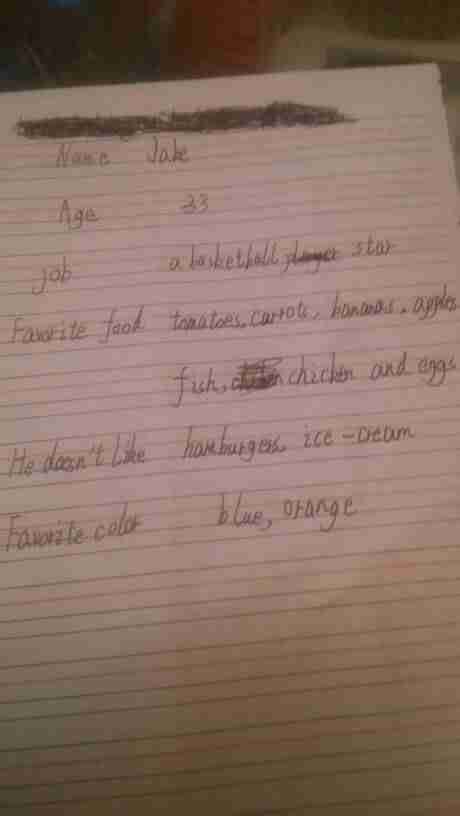 Name Jake
Age 33
job a basketball player star
Favorite food tomatoes, carrots, bananas, apples
fish, chicken and eggs
He doesn't like hamburgers, ice-cream
Favorite color blue, orange